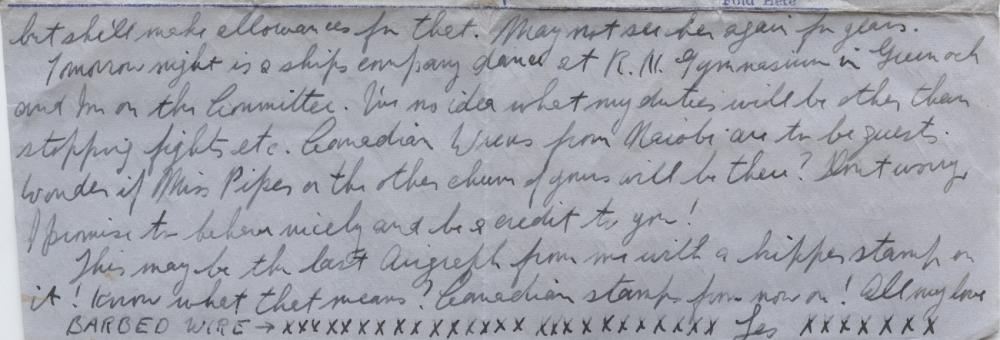 Fold Here
but she'll make allowances for that. May not see her again for years.
Tomorrow night is a ships company dance at R.N. Gymnasium in Greenock
and I'm on the Committee. I've no idea what my duties will be other than
stopping fights etc. Canadian Wrens from Niobe are to be guests.
Wonder if Miss Pipes or the other chum of yours will be there? Don't worry,
I promise to behave nicely and be a credit to you!
This may be the last Airgraph from me with a kipper stamp on
it! Know what that means? Canadian stamps from now on! All my love
BARBED WIRE → xxxxxxxxxxxxxxxxx xxxxxxxxxxxx Les xxxxxxx